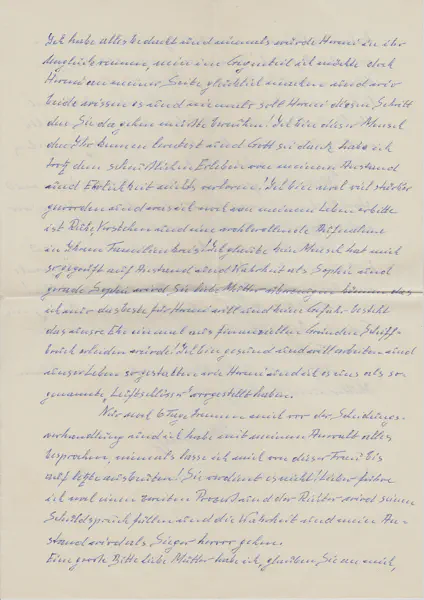 Ich habe alles bedacht und niemals würde Hermi in ihr
Unglück rennen, nein im Gegenteil ich möchte doch
Hermi an meiner Seite glücklich machen und wir
beide wissen es und niemals soll Hermi diesen Schritt
den Sie da gehen müßte bereuen! Ich bin dieser Mensch
den Ihr kennen lerntest und Gott sei Dank habe ich
trotz dem scheußlichen Erleben von meinem Anstand
und Ehrlichkeit nichts verloren! Ich bin viel stärker
geworden und was ich von meinem Leben erbitte
ist Ruhe, Verstehen und eine wohlwollende Aufnahme
in Ihrem Familienkreis! Ich glaube kein Mensch hat mich
so geprüft auf Anstand und Wahrheit als Sophie und
gerade Sophie wird Sie liebe Mutter überzeugen können das
ich nur das beste für Hermi will und keine Gefahr besteht
das unsre Ehe einmal aus finanziellen Gründen Schiff-
bruch erleiden würde! Ich bin gesund und will arbeiten und
unser Leben so gestalten wie Hermi und ich es uns als so-
genannte "Luftschlösser" vorgestellt haben.
Nur noch 6 Tage trennen mich vor der Scheidungs-
verhandlung und ich habe mit meinem Anwalt alles
besprochen, niemals lasse ich mich von dieser Frau bis
aufs letzte ausbeuten! Sie verdient es nicht! Lieber führe
ich noch einen zweiten Prozeß und der Richter wird seinen
Schuldspruch fällen und die Wahrheit und mein An-
stand wird als Sieger hervor gehen.
Eine große Bitte liebe Mutter hab ich, glauben Sie an mich,